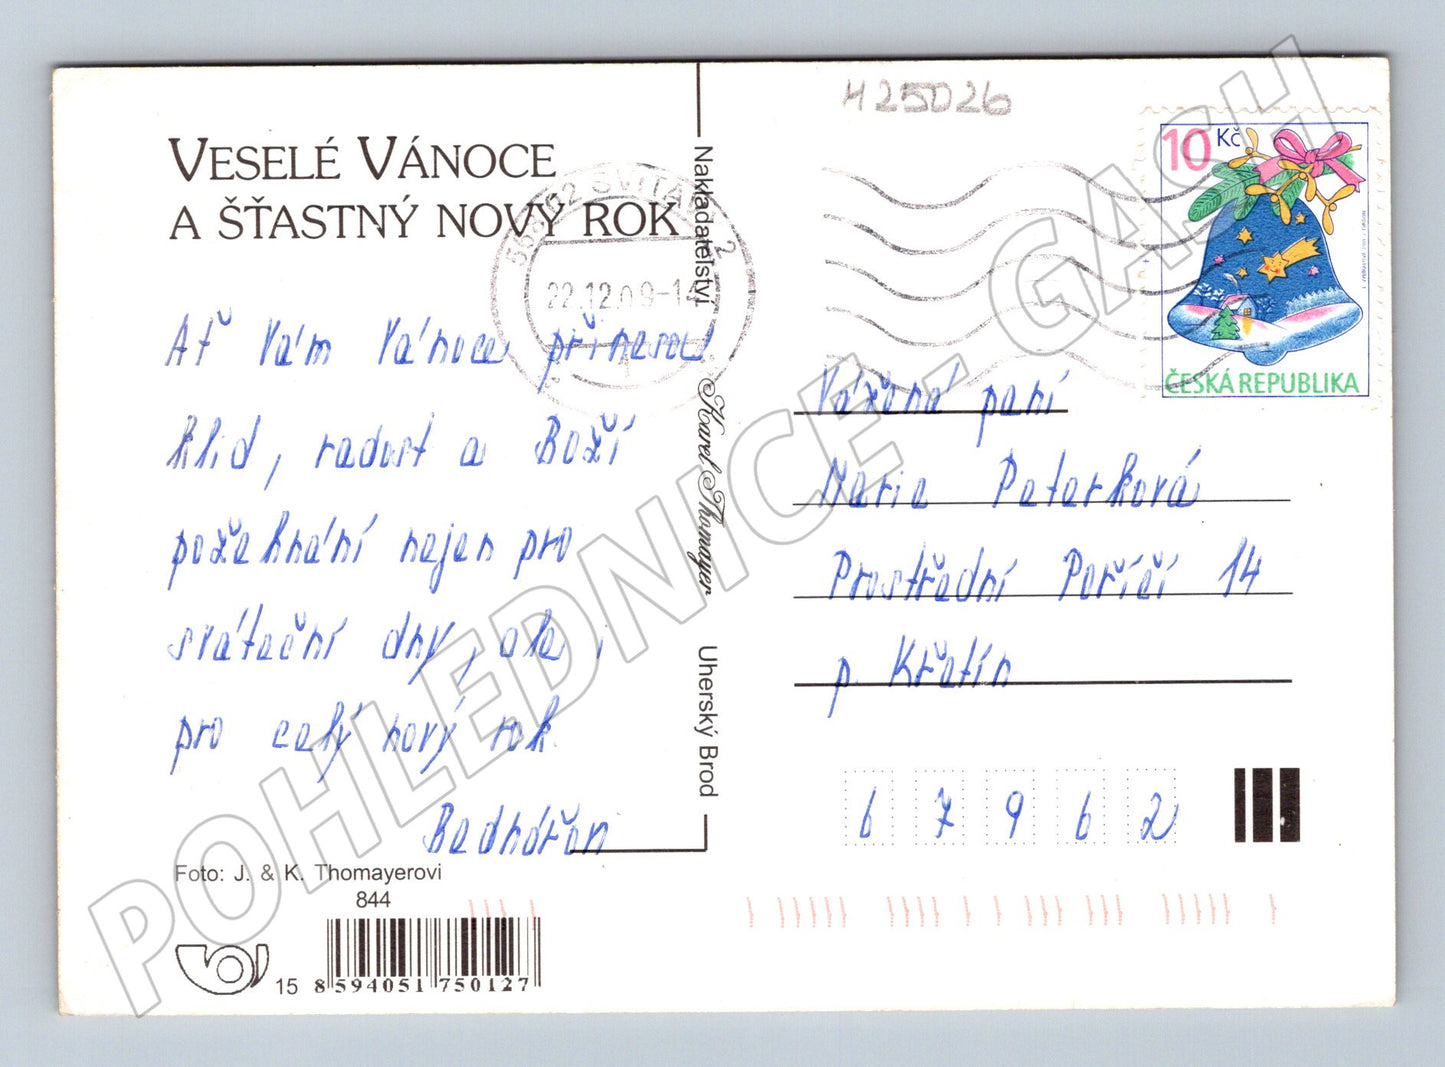 H25026
VESELÉ VÁNOCE
A ŠŤASTNÝ NOVÝ ROK
Ať Vám Vánoce přinesou
klid, radost a Boží
požehnání nejen pro
sváteční dny, ale i
pro celý nový rok.
Foto: J. & K. Thomayerovi
844
15
8 594051 750127
Nakladatelství Karel Thomayer Uherský Brod
22.12.09-14
10 Kč
ČESKÁ REPUBLIKA
Vážená paní
Marie Peterková
Prostřední Poříčí 14
p. Křetín
6 7 9 6 2
POHLEDNICE - GASH